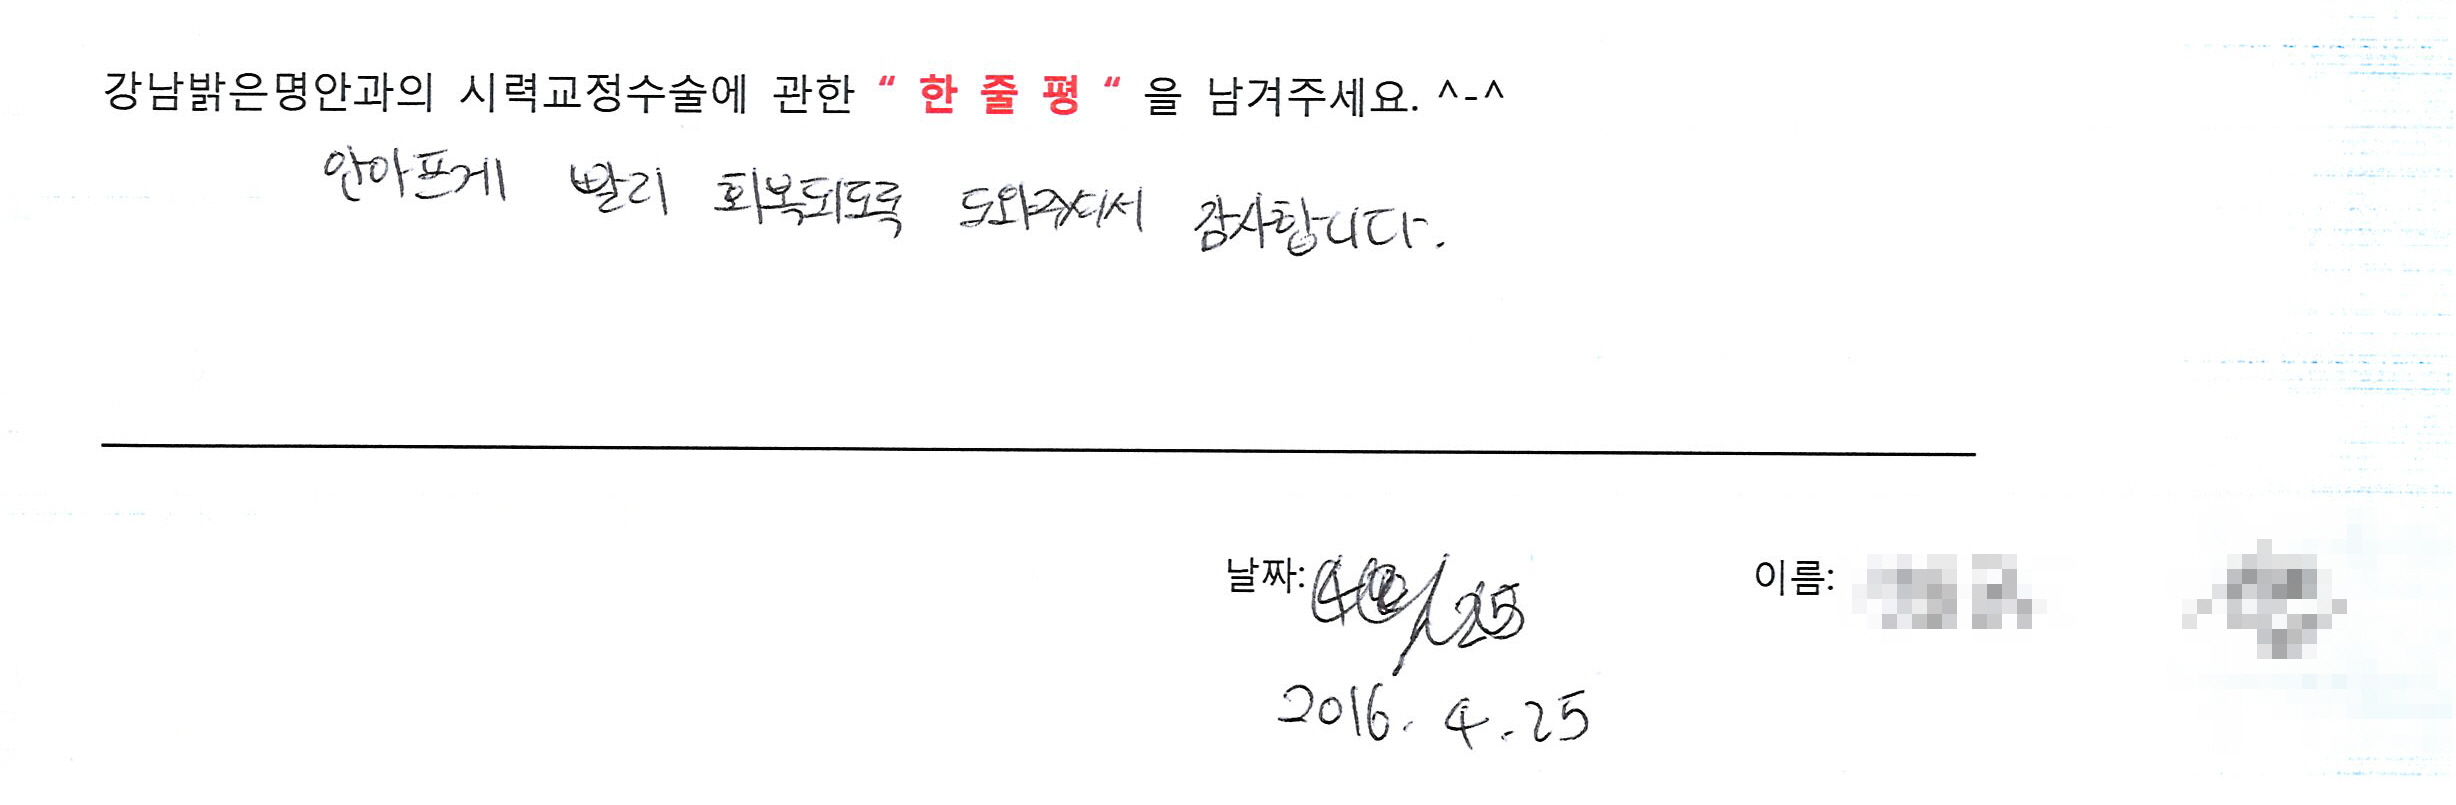 강남밝은명안과의 시력교정수술에 관한 “ 한 줄 평 “ 을 남겨주세요. ^-^
안아프게 빨리 회복되도록 도와주셔서 감사합니다.
날짜: 이름:
2016. 4. 25